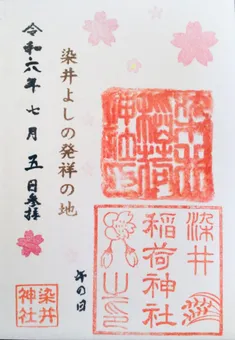 染井
稲荷神社
之印
午の日
染井よしの発祥の地
令和六年七月五日参拝
染井
神社